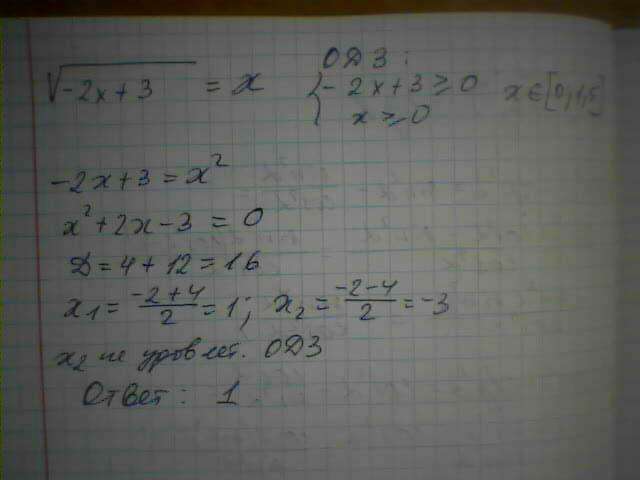 √(-2x+3) = x ОДЗ:
{ -2x+3 ≥ 0 x ∈ [0; 1,5]
x ≥ 0
-2x+3 = x²
x²+2x-3 = 0
Д = 4+12 = 16
x₁ = (-2+4)/2 = 1; x₂ = (-2-4)/2 = -3
x₂ не удовлет. ОДЗ
Ответ: 1